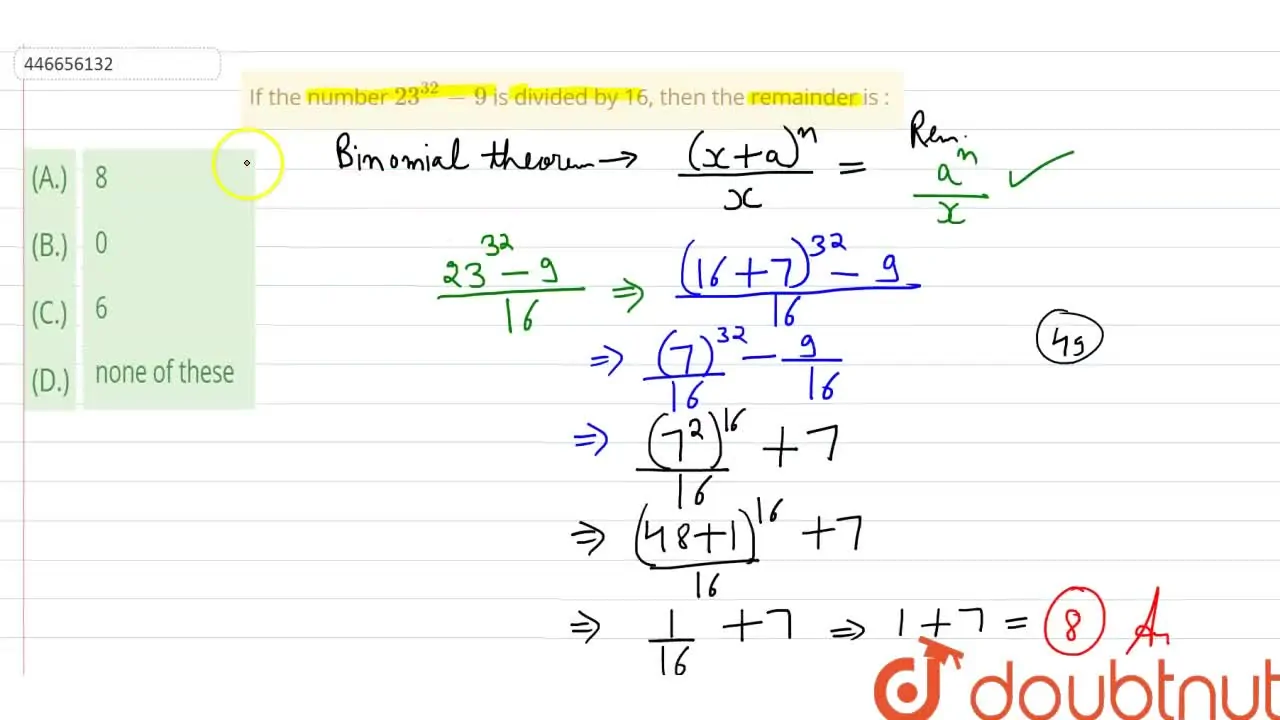 446656132
If the number 23^32 − 9 is divided by 16, then the remainder is :
(A.) 8
(B.) 0
(C.) 6
(D.) none of these
Binomial theorem → (x+a)^n / x = Rem. a^n / x ✓
23^32 − 9 / 16 ⇒ (16+7)^32 − 9 / 16
⇒ (7)^32 / 16 − 9 / 16
49
⇒ (7^2)^16 / 16 + 7
⇒ (48+1)^16 / 16 + 7
⇒ 1 / 16 + 7 ⇒ 1 + 7 = 8
doubtnut